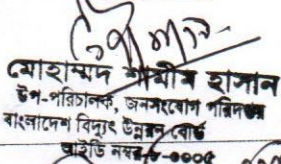 মোহাম্মদ শামীম হাসান
উপ-পরিচালক, জনসংযোগ পরিদপ্তর
বাংলাদেশ বিদ্যুৎ উন্নয়ন বোর্ড
আইডি নম্বর